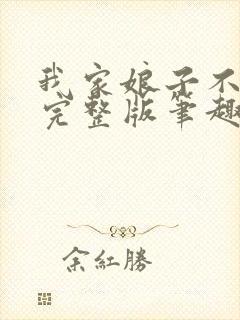 我家娘子不
完整版筆趣
余紅勝